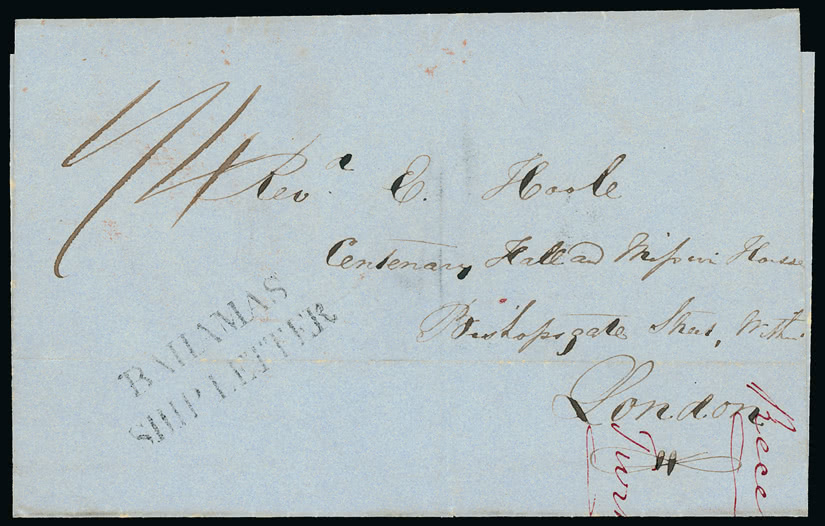 1/4
Rev.d E. Hoole
Centenary Hall and Mission House
Bishopsgate Street, Within
London
BAHAMAS
SHIP LETTER
Rece
Turk